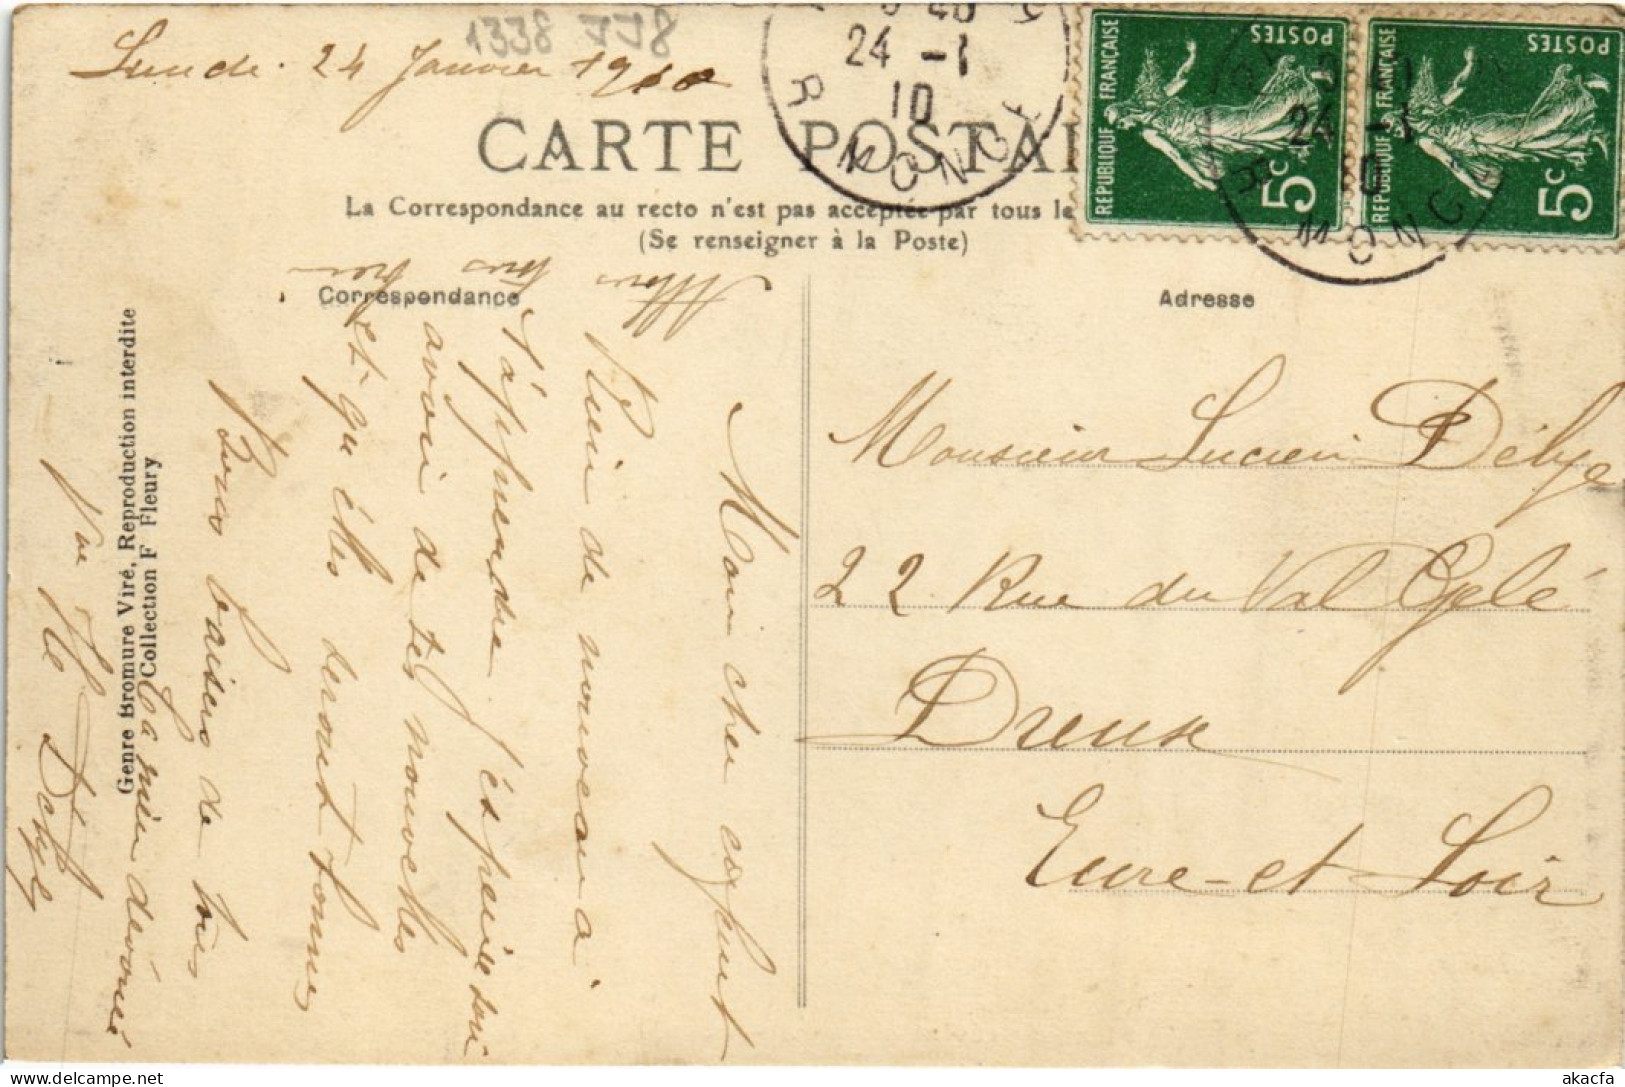 1338 778
Lundi 24 Janvier 1910
CARTE POSTAL
La Correspondance au recto n'est pas acceptée par tous le
(Se renseigner à la Poste)
24 -1
10
R MONGE
RÉPUBLIQUE FRANÇAISE
POSTES
5c
RÉPUBLIQUE FRANÇAISE
POSTES
5c
24 -1
10
R MONG
Correspondance
Adresse
Genre Bromure Viré, Reproduction interdite
Collection F Fleury
Mon cher enfant
Rien de nouveau à
t'apprendre. j'espère
avoir de tes nouvelles
et que elles seront bonnes
Allons tous bien
Bons baisers de tous
Ta mère dévouée
Vve Debye
Monsieur Lucien Débye
22 Rue du Val Gelé
Dreux
Eure-et Loir
akacfa